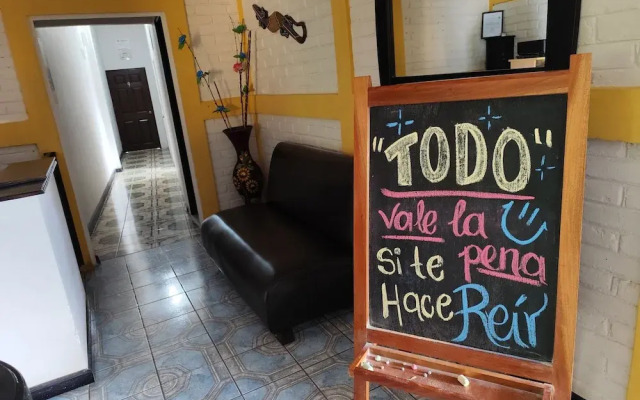 "TODO"
Vale la
Si te pena
Hace Reír